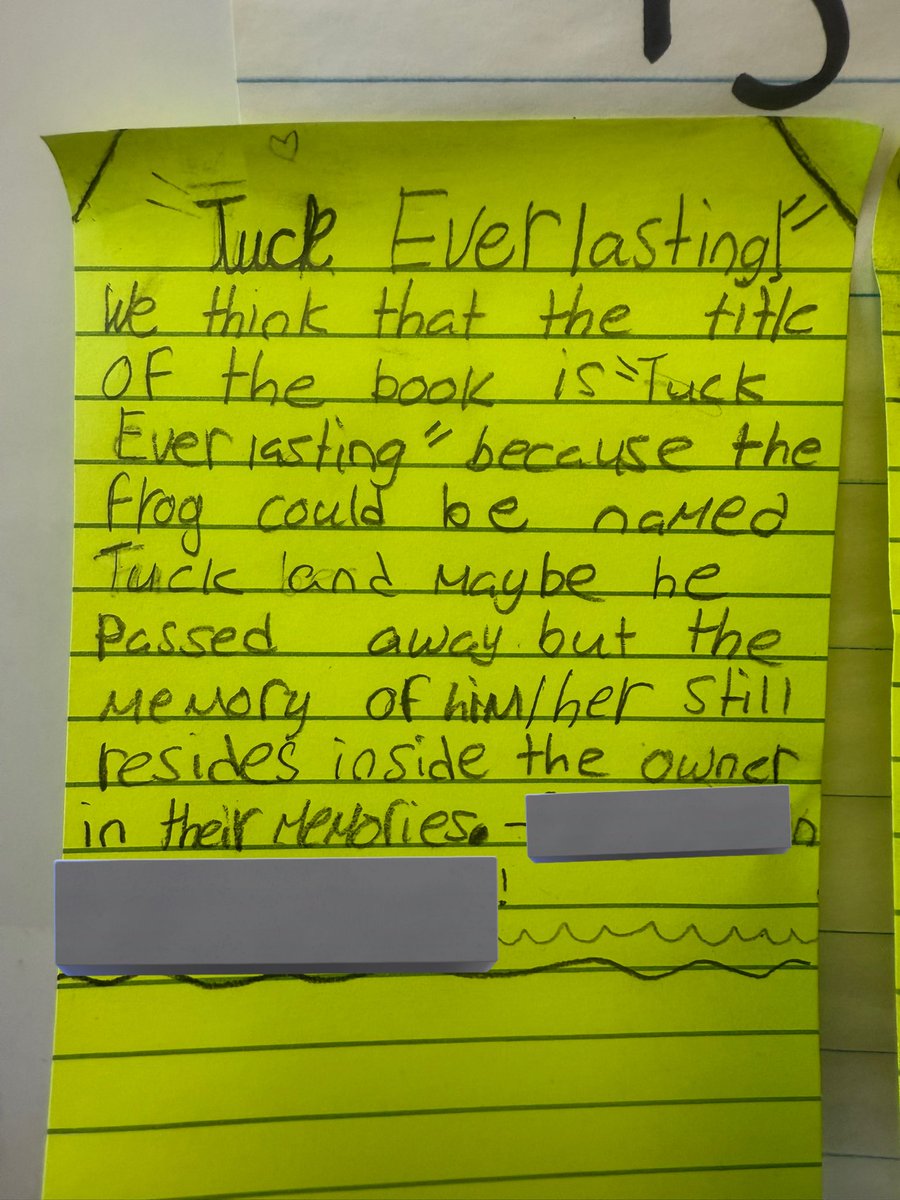 "Tuck Everlasting!"
We think that the title
of the book is "Tuck
Everlasting" because the
frog could be named
Tuck and maybe he
passed away but the
memory of him/her still
resides inside the owner
in their memories. -